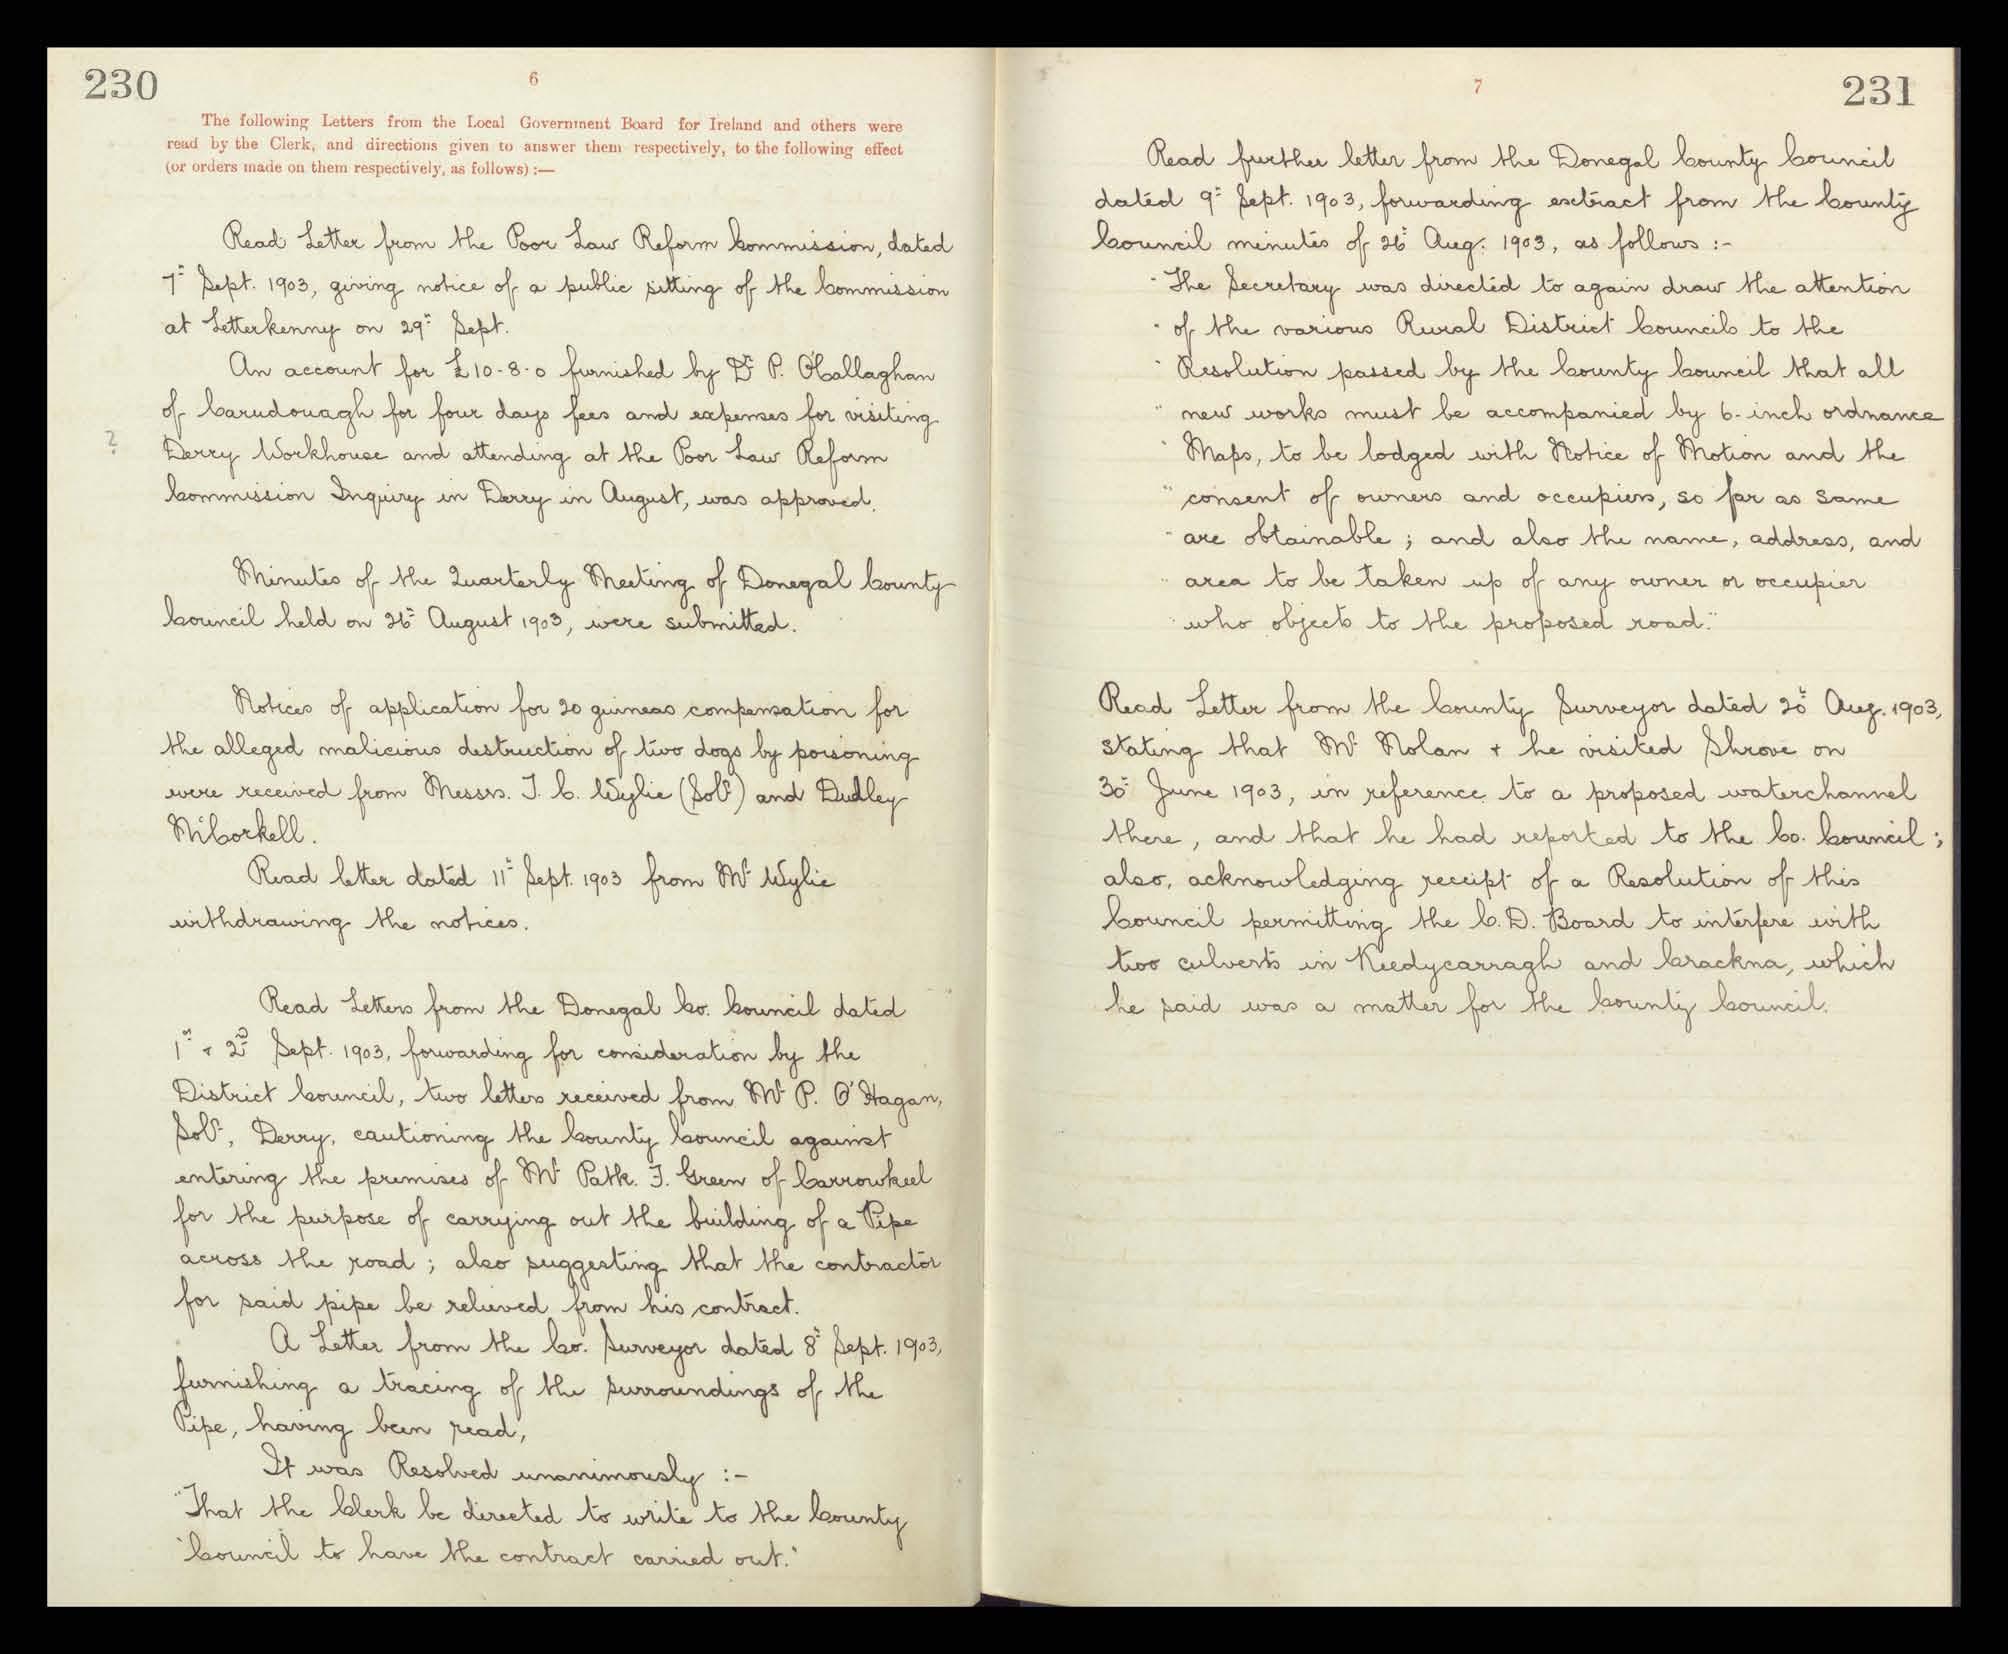 230
6
The following Letters from the Local Government Board for Ireland and others were
read by the Clerk, and directions given to answer them respectively, to the following effect
(or orders made on them respectively, as follows) :—
Read Letter from the Poor Law Reform Commission, dated
7th Sept. 1903, giving notice of a public sitting of the Commission
at Letterkenny on 29th Sept.
An account for £10-8-0 furnished by Dr P. O'Callaghan
of Carndonagh for four days fees and expenses for visiting
?
Derry Workhouse and attending at the Poor Law Reform
Commission Inquiry in Derry in August, was approved.
Minutes of the Quarterly Meeting of Donegal County
Council held on 26th August 1903, were submitted.
Notices of application for 20 guineas compensation for
the alleged malicious destruction of two dogs by poisoning
were received from Messrs. J. C. Wylie (Solr) and Dudley
McCorkell.
Read letter dated 11th Sept. 1903 from Mr Wylie
withdrawing the notices.
Read Letters from the Donegal Co. Council dated
1st & 2nd Sept. 1903, forwarding for consideration by the
District Council, two letters received from Mr P. O'Hagan,
Solr, Derry, cautioning the County Council against
entering the premises of Mr Patk. J. Green of Carrowkeel
for the purpose of carrying out the building of a Pipe
across the road ; also suggesting that the contractor
for said pipe be relieved from his contract.
A Letter from the Co. Surveyor dated 8th Sept. 1903,
furnishing a tracing of the surroundings of the
Pipe, having been read,
It was Resolved unanimously :-
"That the Clerk be directed to write to the County
"Council to have the contract carried out."
7
231
Read further letter from the Donegal County Council
dated 9th Sept. 1903, forwarding extract from the County
Council minutes of 26th Aug. 1903, as follows :-
"The Secretary was directed to again draw the attention
"of the various Rural District Councils to the
"Resolution passed by the County Council that all
"new works must be accompanied by 6-inch ordnance
"Maps, to be lodged with Notice of Motion and the
"consent of owners and occupiers, so far as same
"are obtainable ; and also the name, address, and
"area to be taken up of any owner or occupier
"who objects to the proposed road."
Read Letter from the County Surveyor dated 20th Aug. 1903,
stating that Mr Nolan & he visited Shrove on
30th June 1903, in reference to a proposed waterchannel
there, and that he had reported to the Co. Council ;
also, acknowledging receipt of a Resolution of this
Council permitting the C.D. Board to interfere with
two culverts in Keedycarragh and Crackna, which
he said was a matter for the County Council.